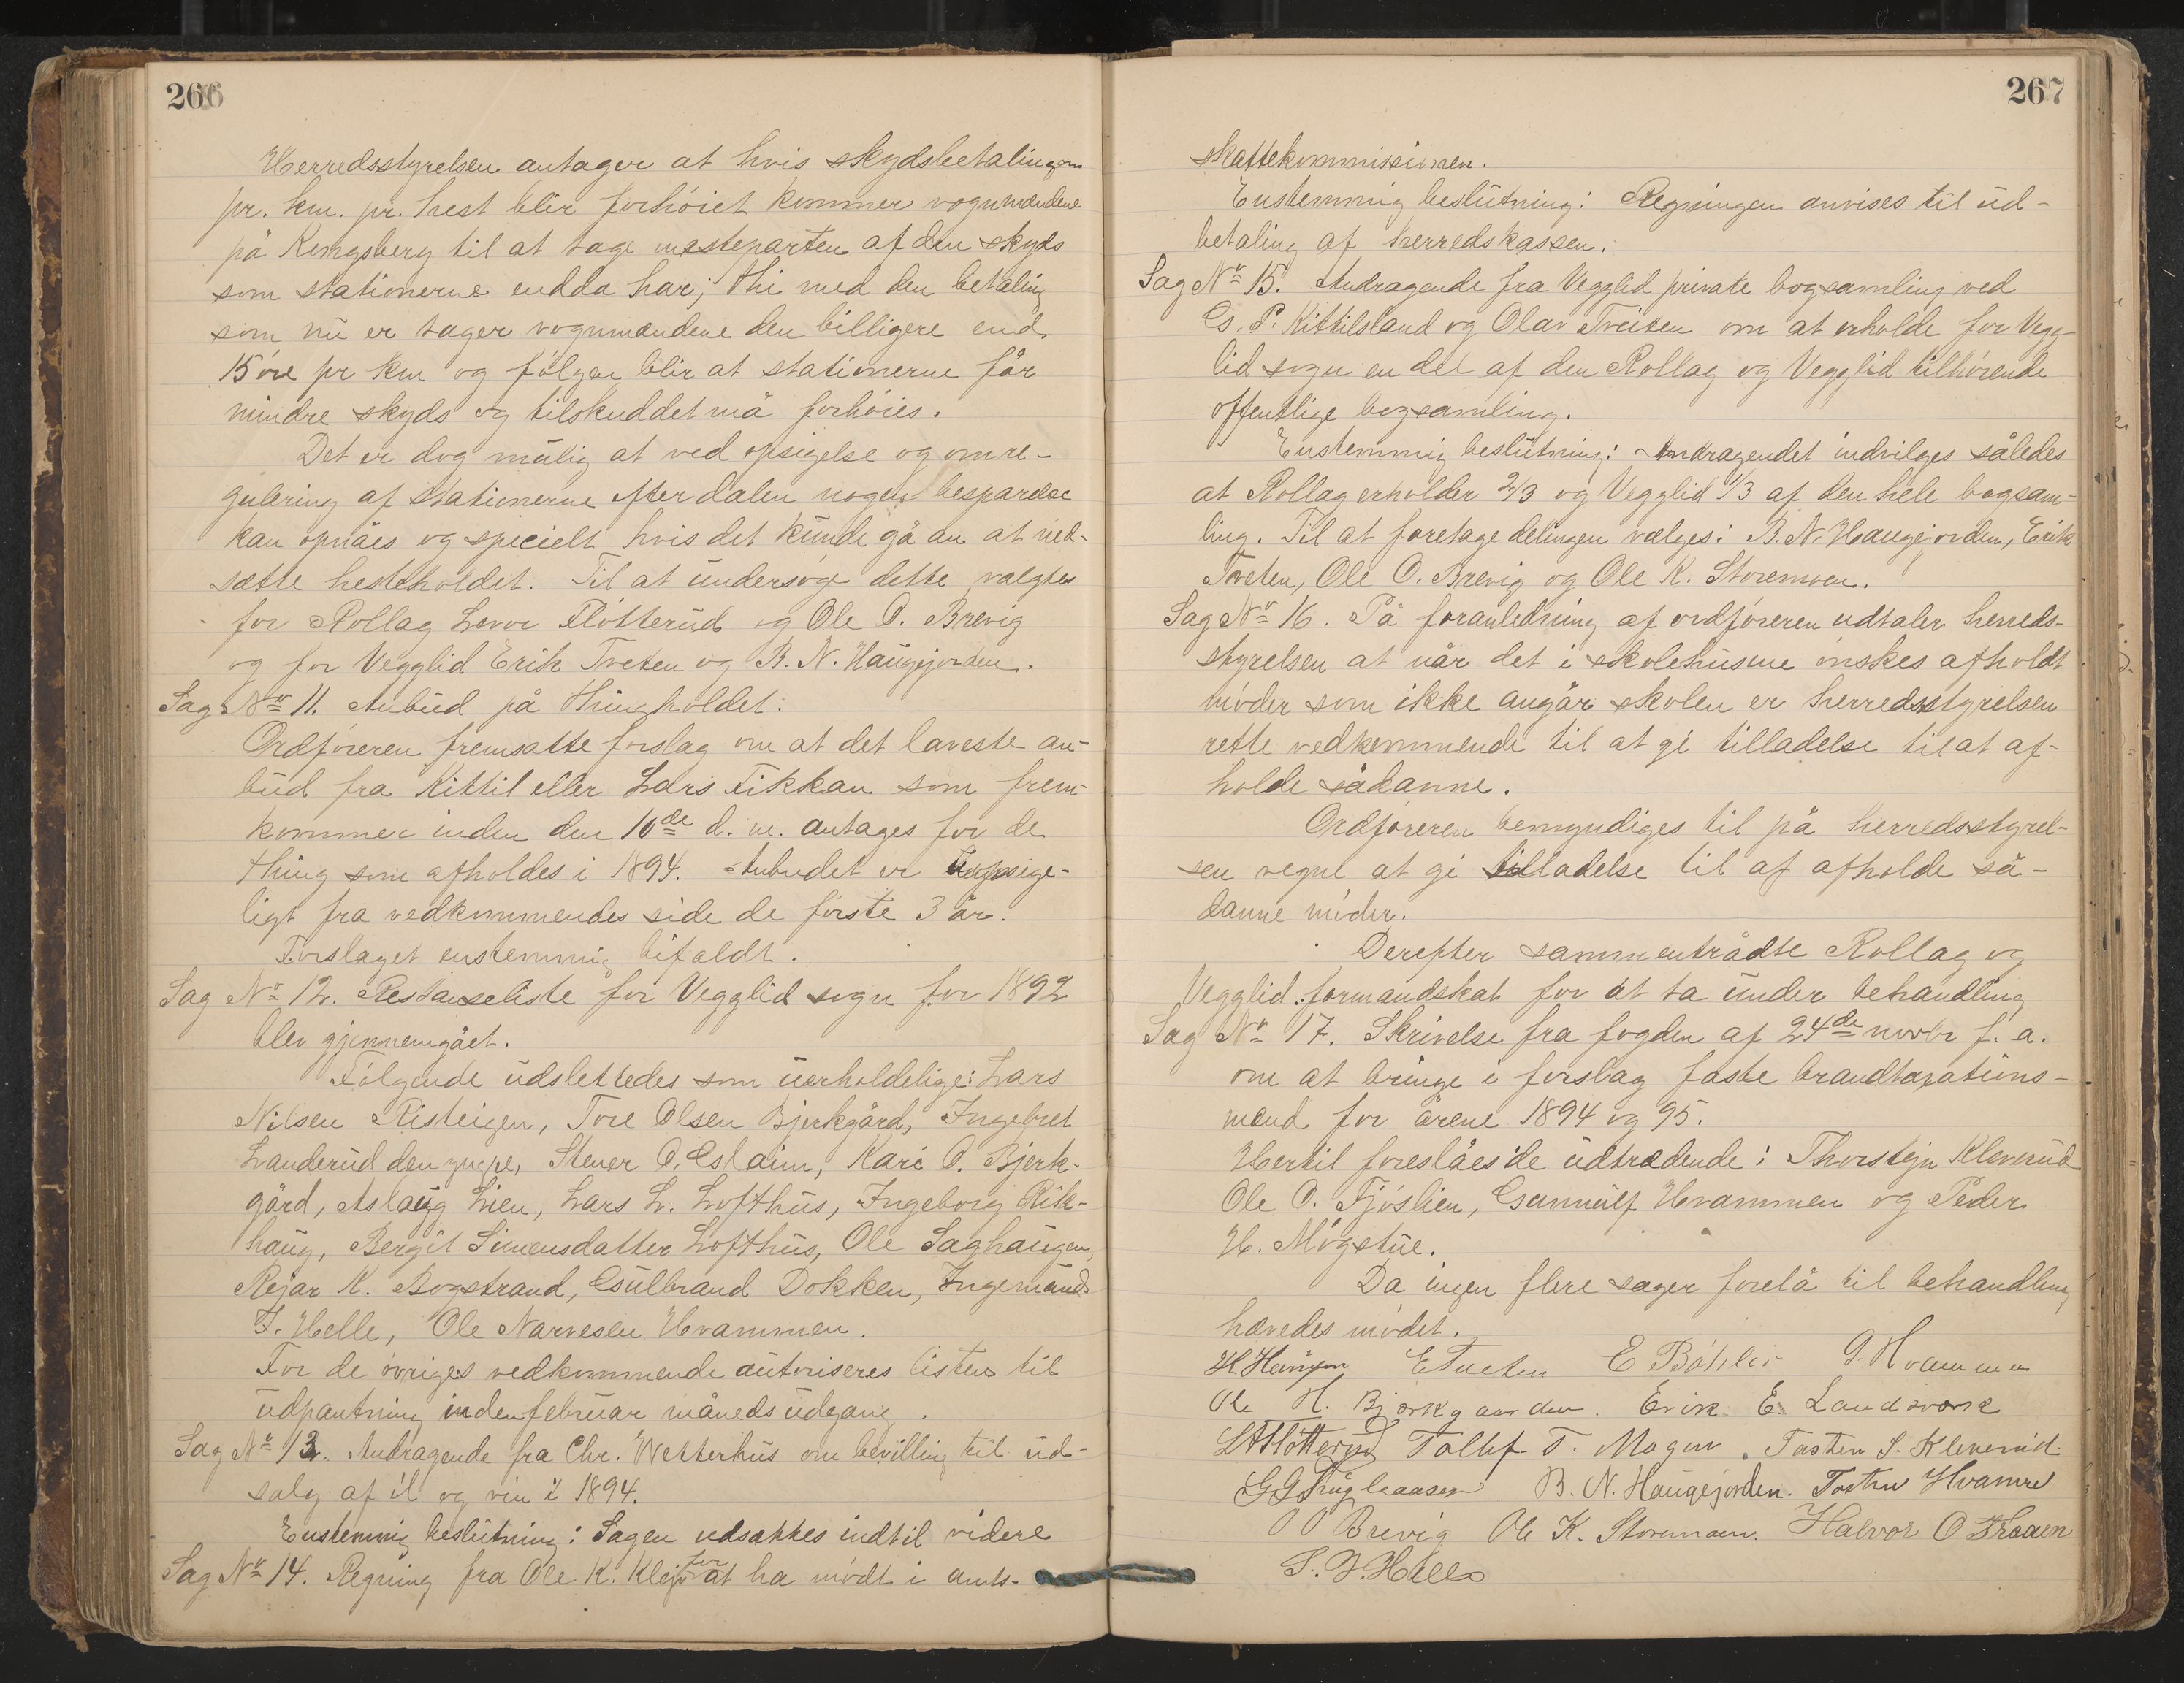 266
Herredsstyrelsen antager at hvis skydsbetalingen
pr. km. pr. hest blir forhöiet kommer vognmændene
på Kongsberg til at tage mesteparten af den skyds
som stationerne endda har; thi med den betaling
som nu er tager vognmændene den billigere end
15 öre pr km og fölgen blir at stationerne får
mindre skyds og tilskuddet må forhöies.
Det er dog mulig at ved opsigelse og omre-
gulering af stationerne efter dalen nogen besparelse
kan opnåes og specielt hvis det kunde gå an at ned-
sætte hesteholdet. Til at undersöge dette valgtes
for Rollag Levor Flötterud og Ole O. Brevig
og for Vegglid Erik Tveten og B. N. Haugejorden.
Sag No 11. Anbud på thingholdet:
Ordföreren fremsatte forslag om at det laveste an-
bud fra Kittil eller Lars Fikkan som frem-
kommer inden den 10de d. m. antages for de
thing som afholdes i 1894. Anbudet er uopsige-
ligt fra vedkommendes side de förste 3 år.
Forslaget enstemmig bifaldt.
Sag No 12. Restanseliste for Vegglid sogn for 1892
blev gjennemgået.
Fölgende udslettedes som uerholdelige: Lars
Nilsen Risteigen, Tore Olsen Bjerkgård, Ingebret
Landerud den yngre, Stener O. Eslaim, Kari O. Bjerk-
gård, Aslaug Lien, Lars L. Lofthus, Ingeborg Rik-
haug, Bergit Simensdatter Lofthus, Ole Saghaugen,
Rejar K. Bogstrand, Gulbrand Dokken, Ingemund
T. Helle, Ole Narvesen Hvammen.
For de övriges vedkommende autoriseres listen til
udpantning inden februar måneds udgang.
Sag No 13. Andragende fra Chr. Wetterhus om bevilling til ud-
salg af öl og vin i 1894.
Enstemmig beslutning: Sagen udsættes indtil videre
Sag No 14. Regning fra Ole K. Klejo for at ha mödt i amts-
267
skattekommissionen.
Enstemmig beslutning: Regningen anvises til ud-
betaling af herredskassen.
Sag No 15. Andragende fra Vegglid private bogsamling ved
G. P. Kittilsland og Olav Tveiten om at erholde for Vegg-
lid sogn en del af den Rollag og Vegglid tilhörende
offentlige bogsamling.
Enstemmig beslutning: Andragendet indvilges således
at Rollag erholder 2/3 og Vegglid 1/3 af den hele bogsam-
ling. Til at foretage delingen vælges: B. N. Haugejorden, Erik
Tveten, Ole O. Brevig og Ole K. Storemoen.
Sag No 16. På foranledning af ordföreren udtaler herreds-
styrelsen at når det i skolehusene önskes afholdt
möder som ikke angår skolen er herredsstyrelsen
rette vedkommende til at gi tilladelse til at af-
holde sådanne.
Ordföreren bemyndiges til på herredsstyrel-
sen vegne at gi tilladelse til af afholde så-
danne möder.
Derefter sammentrådte Rollag og
Vegglid formandskab for at ta under behandling
Sag No 17. Skrivelse fra fogden af 24de novbr f. a.
om at bringe i forslag faste brandtaxations-
mænd for årene 1894 og 95.
Hertil foreslåes de udtrædende: Thorstejn Kleverud
Ole O. Fjöslien, Gunnulf Hvammen og Peder
H. Mögstue.
Da ingen flere sager forelå til behandling
hævedes mödet.
H Haugen E Tveten E Böhler G. Hvammen
Ole H. Bjørkgaarden. Erik E. Landsværk
L A Flötterud Tollef T. Mogen. Tosten S. Kleverud.
B. N. Haugejorden. Tosten Hvamre
O O Brevig Ole K. Storemoen. Halvor O Traaen
S. T. Helle